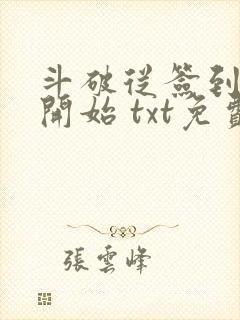 斗破從簽到
開始 txt免費
張雲峰